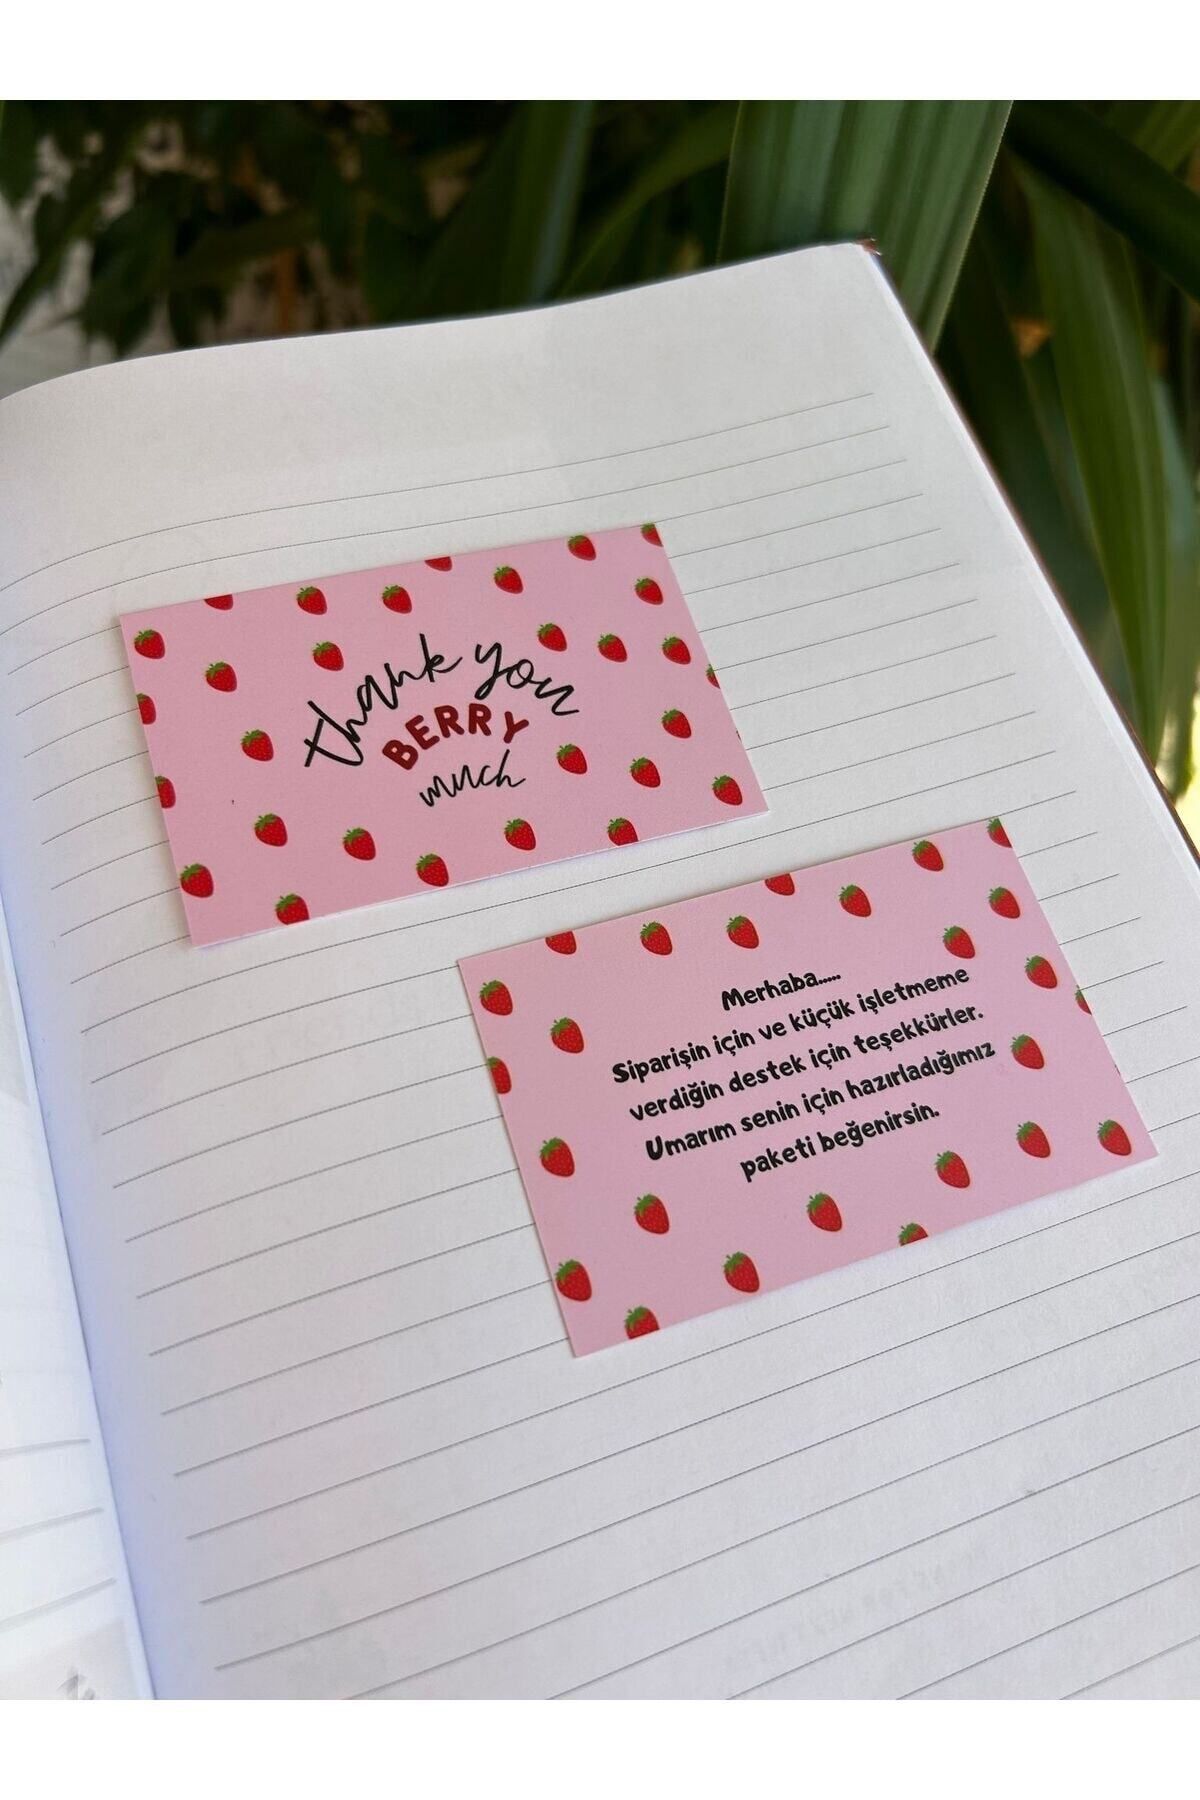 thank you
BERRY
much
Merhaba.....
Siparişin için ve küçük işletmeme
verdiğin destek için teşekkürler.
Umarım senin için hazırladığımız
paketi beğenirsin.